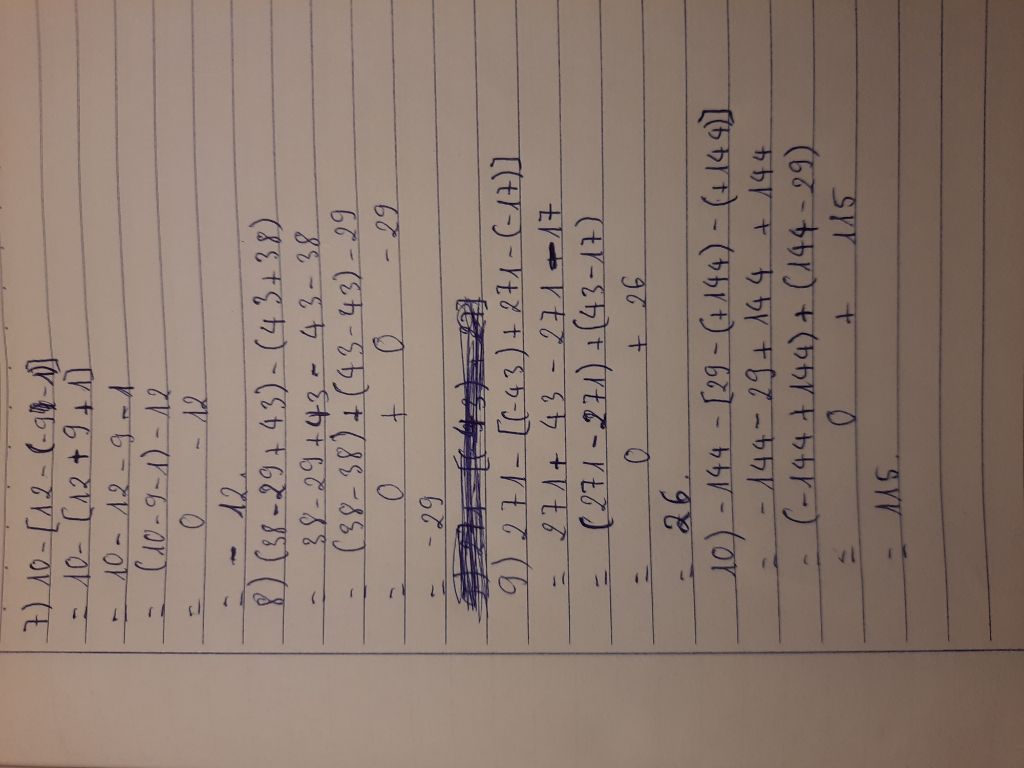 7) 10 - [12 - (-9 - 1)]
= 10 - [12 + 9 + 1]
= 10 - 12 - 9 - 1
= (10 - 9 - 1) - 12
= 0 - 12
= - 12.
8) (38 - 29 + 43) - (43 + 38)
= 38 - 29 + 43 - 43 - 38
= (38 - 38) + (43 - 43) - 29
= 0 + 0 - 29
= - 29
9) 271 - [(-43) + 271 - (-17)]
= 271 + 43 - 271 - 17
= (271 - 271) + (43 - 17)
= 0 + 26
= 26.
10) - 144 - [29 - (+144) - (+144)]
= - 144 - 29 + 144 + 144
= (-144 + 144) + (144 - 29)
= 0 + 115
= 115.